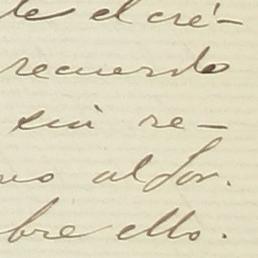 te el cré-
recuerdo
sin re-
no al Sor.
bre ello.